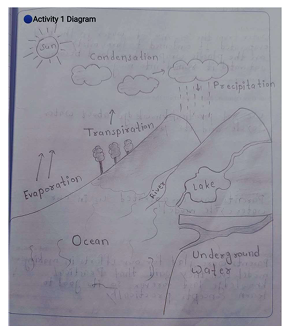 Activity 1 Diagram
Sun
Condensation
Precipitation
Transpiration
Evaporation
River
Lake
Ocean
Underground
water